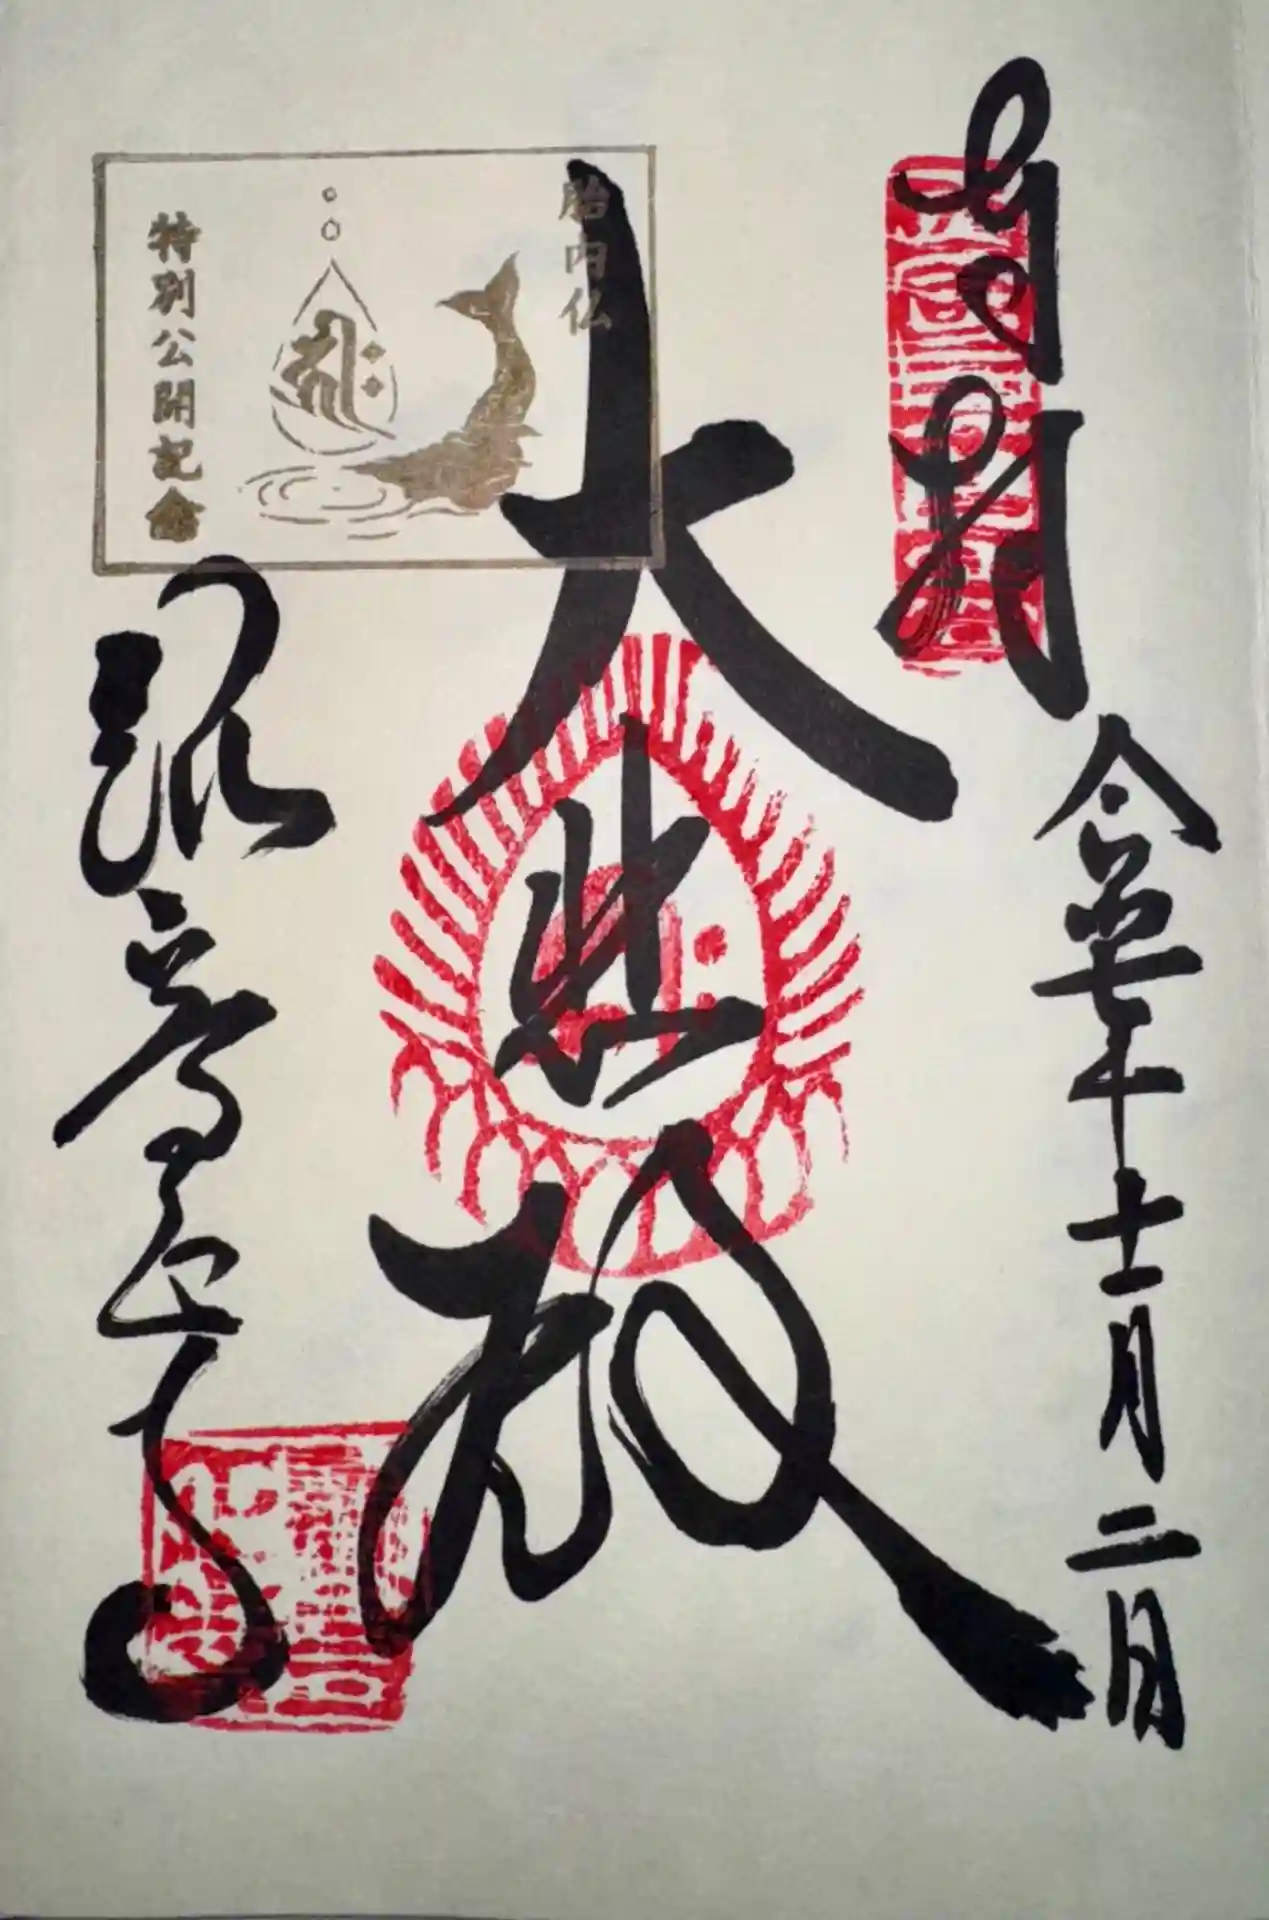 奉拝
令和七年十一月二日
大悲殿
胎内仏
特別公開記念
観音正寺